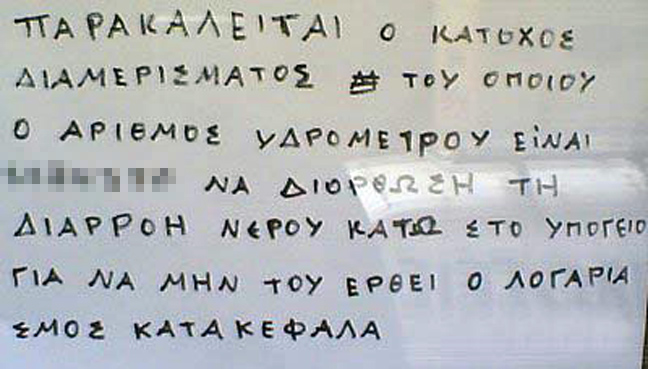 ΠΑΡΑΚΑΛΕΙΤΑΙ Ο ΚΑΤΟΧΟΣ
ΔΙΑΜΕΡΙΣΜΑΤΟΣ ΤΟΥ ΟΠΟΙΟΥ
Ο ΑΡΙΘΜΟΣ ΥΔΡΟΜΕΤΡΟΥ ΕΙΝΑΙ
ΝΑ ΔΙΟΡΘΩΣΗ ΤΗ
ΔΙΑΡΡΟΗ ΝΕΡΟΥ ΚΑΤΩ ΣΤΟ ΥΠΟΓΕΙΟ
ΓΙΑ ΝΑ ΜΗΝ ΤΟΥ ΕΡΘΕΙ Ο ΛΟΓΑΡΙΑ
ΣΜΟΣ ΚΑΤΑΚΕΦΑΛΑ